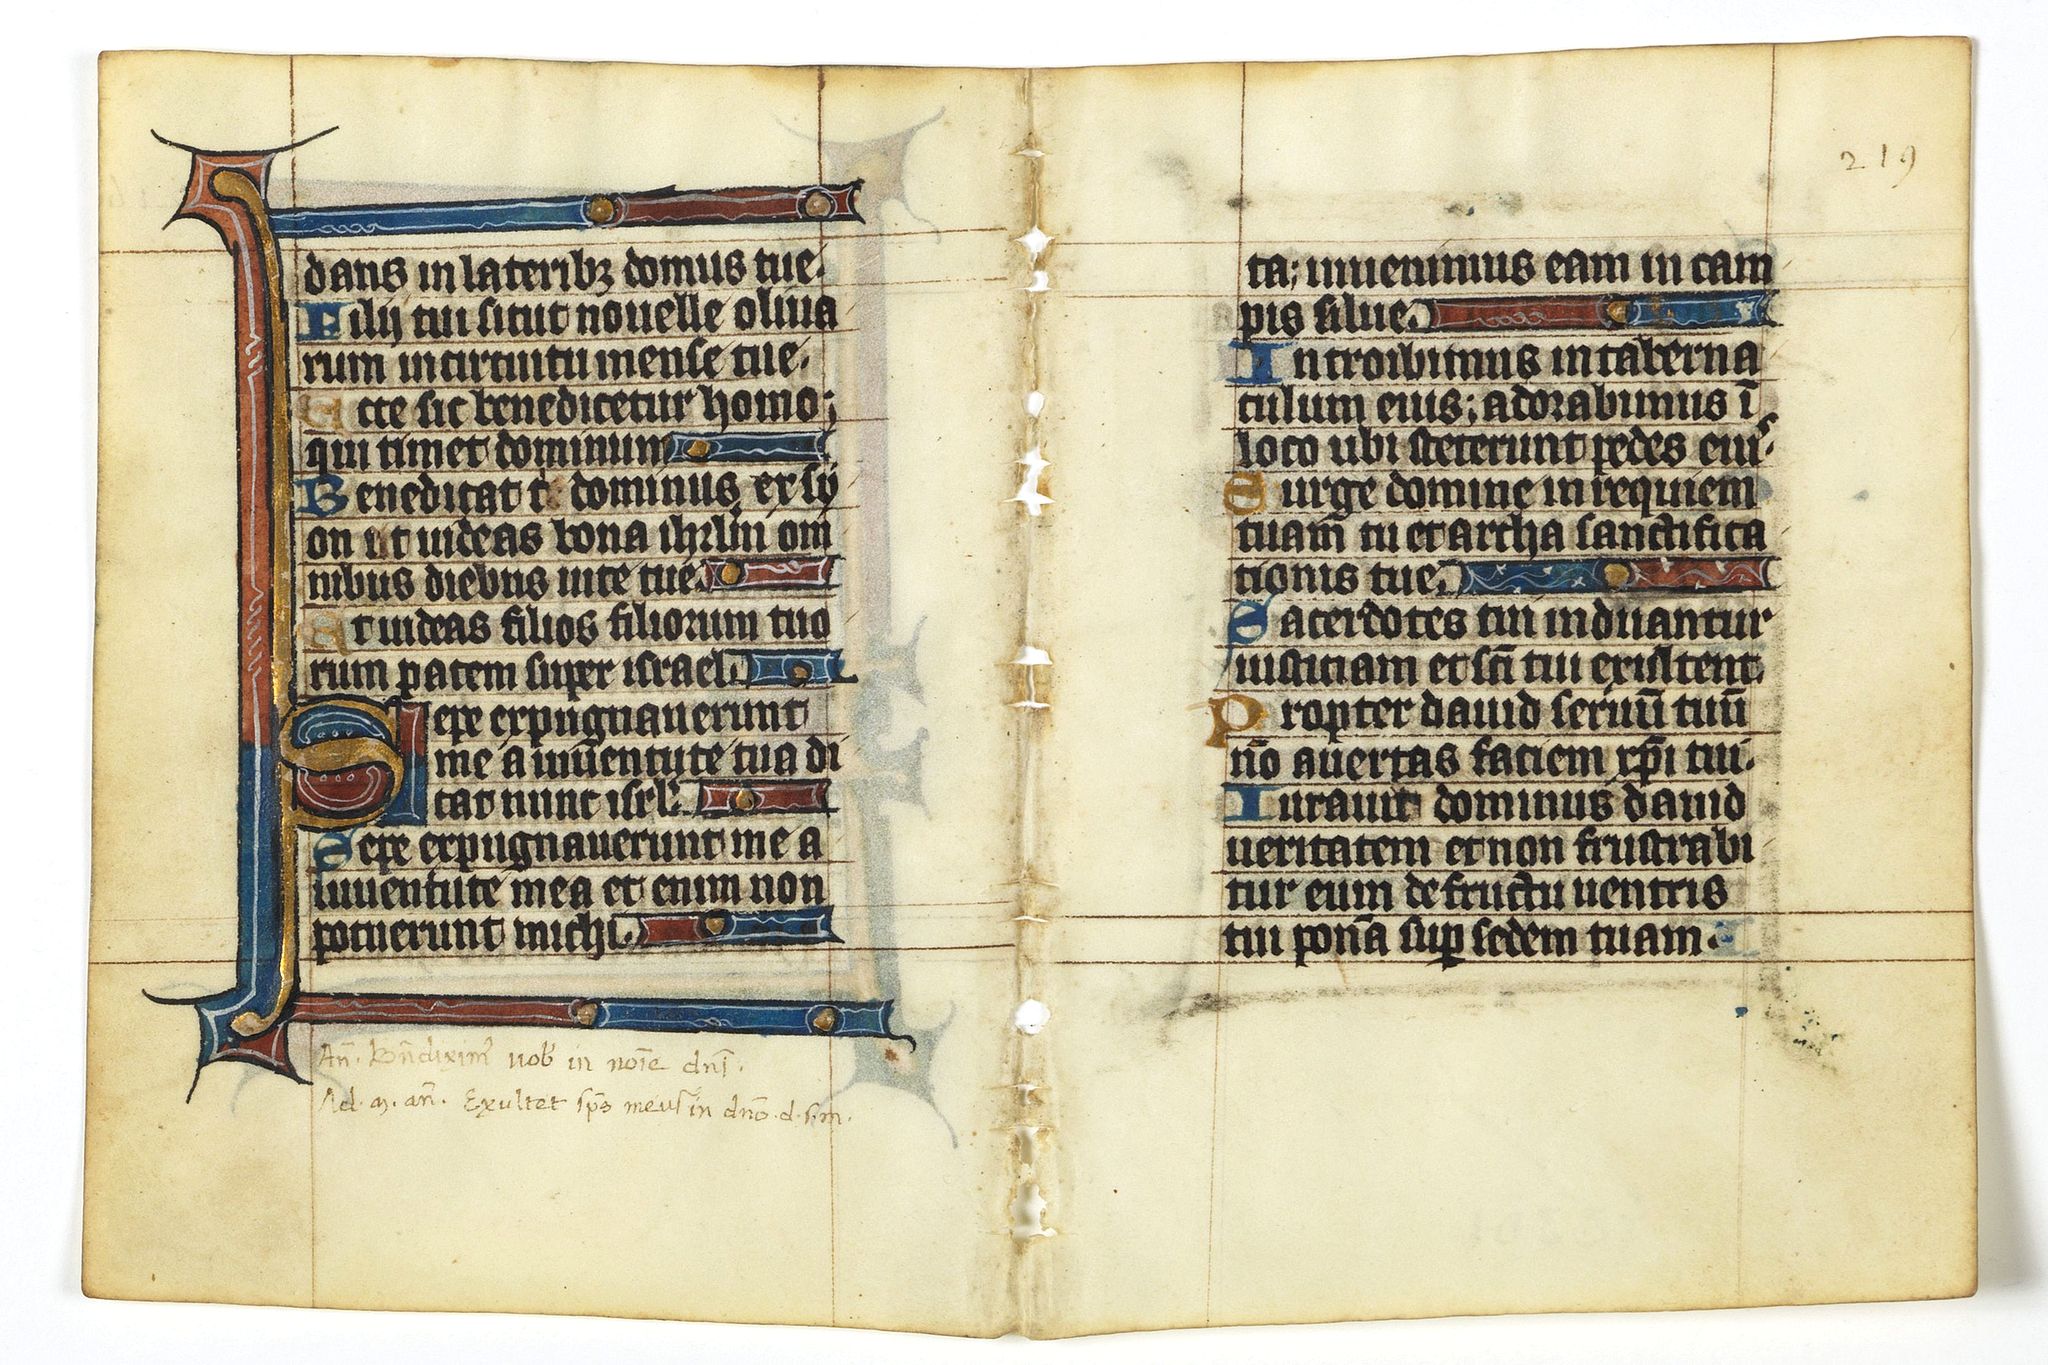 dans in laterib&#42863; domus tue.
Filij tui sicut nouelle oliua
rum in circuitu mense tue.
Ecce sic benedicetur homo;
qui timet dominum
Benedicat t dominus ex sy
on ut uideas bona ihrlm om
nibus diebus uite tue.
Et uideas filios filiorum tuo
rum pacem super israel.
Sepe expugnauerunt
me a iuuentute tua di
cat nunc isrl.
Sepe expugnauerunt me a
iuuentute mea et enim non
potuerunt michi.
Añ. bñdixim⁹ uob in noīe dnī.
Ad. m. añ. Exultet sp̄s meus in dnō. d. s. m.
219
ta; inuenimus eam in cam
pis silue.
Introibimus in taberna
culum eius; adorabimus ī
loco ubi steterunt pedes eius.
Surge domine in requiem
tuam tu et archa sanctifica
tionis tue.
Sacerdotes tui induantur
iusticiam et sc̄i tui exultent.
Propter dauid seruū tuū
nō auertas faciem xp̄i tui.
Iurauit dominus dauid
ueritatem et non frustrabi
tur eum de fructu uentris
tui ponā sup sedem tuam.